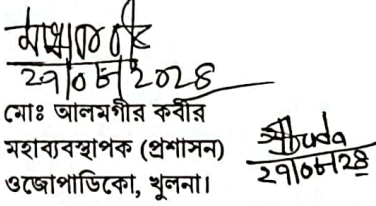 ২৭/০৮/2028
মোঃ আলমগীর কবীর
মহাব্যবস্থাপক (প্রশাসন)
ওজোপাডিকো, খুলনা।
২৭/০৮/২৪